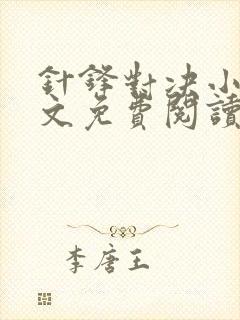 針鋒對决小
文免費閱讀
李唐王